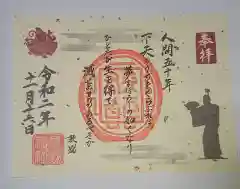 奉拝
人間五十年
下天のうちをくらぶれば
夢まぼろしの如くなり
ひとたび生を得て
滅せぬもののあるべきか
敦盛
令和二年
十一月十六日